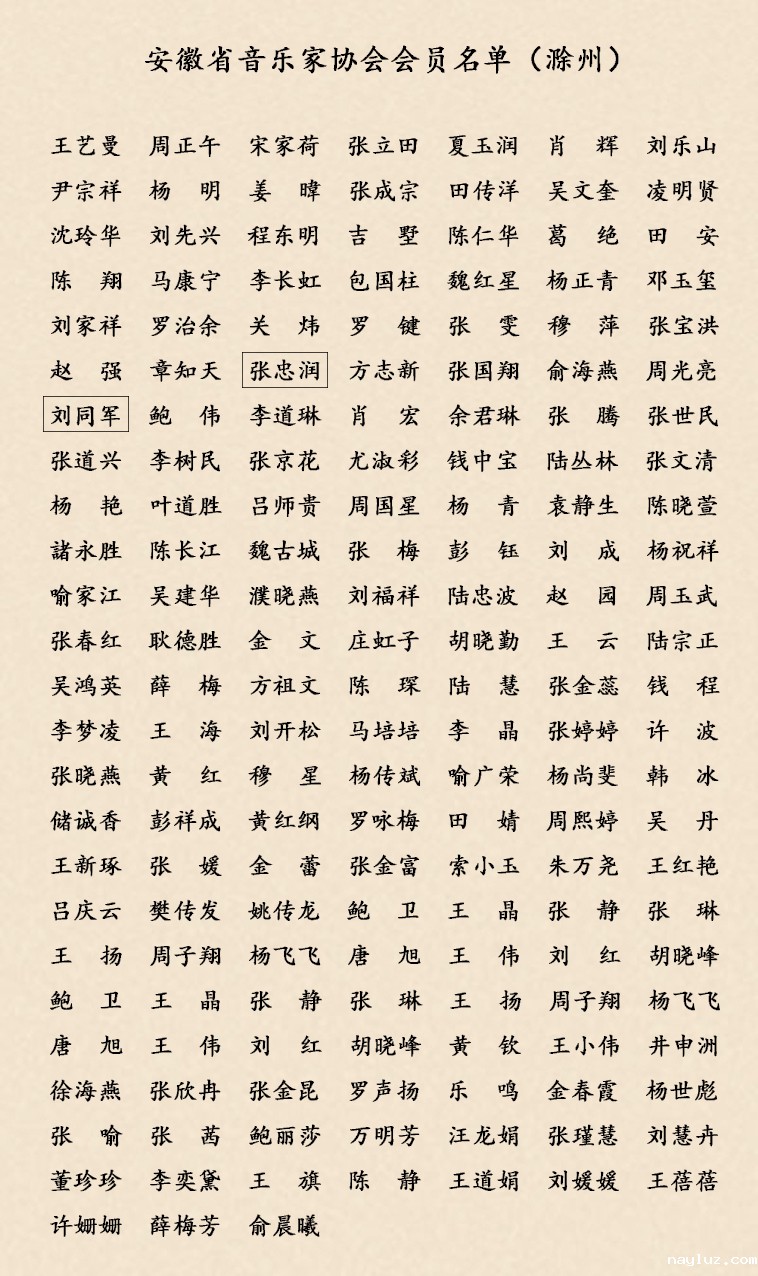 安徽省音乐家协会会员名单（滁州）
王艺曼 周正午 宋家荷 张立田 夏玉润 肖 辉 刘乐山
尹宗祥 杨 明 姜 暐 张成宗 田传洋 吴文奎 凌明贤
沈玲华 刘先兴 程东明 吉 墅 陈仁华 葛 绝 田 安
陈 翔 马康宁 李长虹 包国柱 魏红星 杨正青 邓玉玺
刘家祥 罗治余 关 炜 罗 键 张 雯 穆 萍 张宝洪
赵 强 章知天 张忠润 方志新 张国翔 俞海燕 周光亮
刘同军 鲍 伟 李道琳 肖 宏 余君琳 张 腾 张世民
张道兴 李树民 张京花 尤淑彩 钱中宝 陆丛林 张文清
杨 艳 叶道胜 吕师贵 周国星 杨 青 袁静生 陈晓萱
諸永胜 陈长江 魏古城 张 梅 彭 钰 刘 成 杨祝祥
喻家江 吴建华 濮晓燕 刘福祥 陆忠波 赵 园 周玉武
张春红 耿德胜 金 文 庄虹子 胡晓勤 王 云 陆宗正
吴鸿英 薛 梅 方祖文 陈 琛 陆 慧 张金蕊 钱 程
李梦凌 王 海 刘开松 马培培 李 晶 张婷婷 许 波
张晓燕 黄 红 穆 星 杨传斌 喻广荣 杨尚斐 韩 冰
储诚香 彭祥成 黄红纲 罗咏梅 田 婧 周熙婷 吴 丹
王新琢 张 媛 金 蕾 张金富 索小玉 朱万尧 王红艳
吕庆云 樊传发 姚传龙 鲍 卫 王 晶 张 静 张 琳
王 扬 周子翔 杨飞飞 唐 旭 王 伟 刘 红 胡晓峰
鲍 卫 王 晶 张 静 张 琳 王 扬 周子翔 杨飞飞
唐 旭 王 伟 刘 红 胡晓峰 黄 钦 王小伟 井申洲
徐海燕 张欣冉 张金昆 罗声扬 乐 鸣 金春霞 杨世彪
张 喻 张 茜 鲍丽莎 万明芳 汪龙娟 张瑾慧 刘慧卉
董珍珍 李奕黛 王 旗 陈 静 王道娟 刘媛媛 王蓓蓓
许姗姗 薛梅芳 俞晨曦
nayluz.com